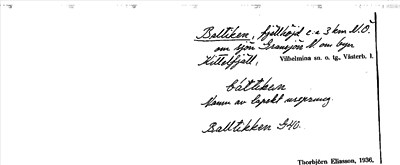 Baltiken, fjällhöjd c:a 3 km N.Ö.
om sjön Gransjön N. om byn
Kittelfjäll, Vilhelmina sn. o. tg., Västerb. l.
báttiken
Namn av lapskt ursprung.
Balltikken GHC.
Thorbjörn Eliasson, 1936.